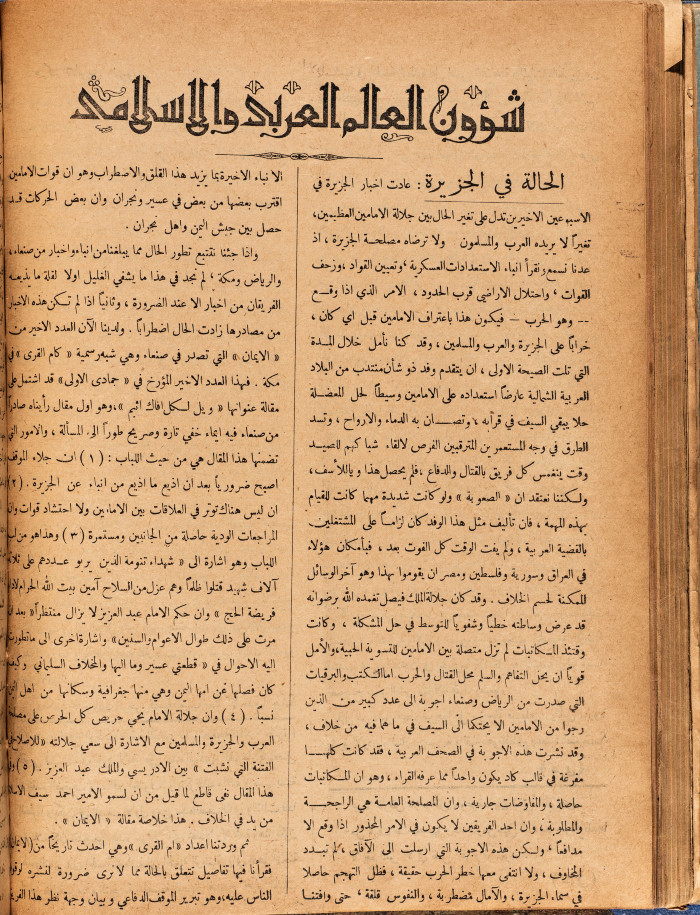 شؤون العالم العربي والاسلامي
الحالة في الجزيرة : عادت اخبار الجزيرة في
الاسبوعين الاخيرين تدل على تغير الحال بين جلالة الامامين العظيمين،
تغيراً لا يريده العرب والمسلمون ولا ترضاه مصلحة الجزيرة ، اذ
عدنا نسمع ونقرأ انباء الاستعدادات العسكرية ، وتعيين القواد ، وزحف
القوات ، واحتلال الاراضي قرب الحدود ، الامر الذي اذا وقع
-- وهو الحرب — فيكون هذا باعتراف الامامين قبل اي كان ،
خراباً على الجزيرة والعرب والمسلمين ، وقد كنا نأمل خلال المدة
التي تلت الصيحة الاولى ، ان يتقدم وفد ذو شأن منتدب من البلاد
العربية الشمالية عارضاً استعداده على الامامين وسيطاً لحل المعضلة
حلا يبقي السيف في قرابه ، وتصان به الدماء والارواح ، وتسد
الطرق في وجه المستعمرين المترقبين الفرص لالقاء شباكهم للصيد
وقت ينغمس كل فريق بالقتال والدفاع ، فلم يحصل هذا وياللأسف ،
ولكننا نعتقد ان « الصعوبة » ولو كانت شديدة مهما كانت للقيام
بهذه المهمة ، فان تأليف مثل هذا الوفد كان لزاماً على المشتغلين
بالقضية العربية ، ولم يفت الوقت كل الفوت بعد ، فبأمكان هؤلاء
في العراق وسورية وفلسطين ومصر ان يقوموا بهذا وهو آخر الوسائل
الممكنة لحسم الخلاف . وقد كان جلالة الملك فيصل تغمده الله برضوانه
قد عرض وساطته خطياً وشفوياً للتوسط في حل المشكلة ، وكانت
وقتئذ المكاتبات لم تزل متصلة بين الامامين للتسوية الحبية ، والأمل
قوياً ان يحل التفاهم والسلم محل القتال والحرب اما الكتب والبرقيات
التي صدرت من الرياض وصنعاء اجوبة الى عدد كبير من الذين
رجوا من الامامين الا يحتكما الى السيف في ما هما فيه من خلاف ،
وقد نشرت هذه الاجوبة في الصحف العربية ، فقد كانت كلها
مفرغة في قالب كاد يكون واحداً مما عرفه القراء ، وهو ان المكاتبات
حاصلة ، والمفاوضات جارية ، وان المصلحة العامة هي الراجحة
والمطلوبة ، وان احد الفريقين لا يكون في الامر المحذور اذا وقع الا
مدافعاً ، ولكن هذه الاجوبة التي ارسلت الى الآفاق ، لم تبدد
المخاوف ، ولا انتفى معها خطر الحرب حقيقة ، فظل التجهم حاصلا
في سماء الجزيرة ، والآمال مضطربة ، والنفوس قلقة ، حتى وافتنا
الانباء الاخيرة بما يزيد هذا القلق والاضطراب وهو ان قوات الامامين
اقترب بعضها من بعض في عسير ونجران وان بعض الحركات قد
حصل بين جيش اليمن واهل نجران .
واذا جئنا نتتبع تطور الحال مما يبلغنا من انباء واخبار من صنعاء ،
والرياض ومكة ، لم نجد في هذا ما يشفي الغليل اولا لقلة ما يذيعه
الفريقان من اخبار الا عند الضرورة ، وثانياً اذا لم تكن هذه الاخبار
من مصادرها زادت الحال اضطراباً . ولدينا الآن العدد الاخير من
« الايمان » التي تصدر في صنعاء وهي شبه رسمية « كام القرى » في
مكة . فبهذا العدد الاخير المؤرخ في « جمادى الاولى » قد اشتمل على
مقالة عنوانها « ويل لكل افاك اثيم » ، وهو اول مقال رأيناه صادراً
من صنعاء فيه ايماء خفي تارة وصريح طوراً الى المسألة ، والامور التي
تضمنها هذا المقال هي من حيث اللباب : ( ١ ) ان جلاء الموقف
اصبح ضرورياً بعد ان اذيع ما اذيع من انباء عن الجزيرة . ( ٢ )
ان ليس هناك توتر في العلاقات بين الامامين ولا احتشاد قوات وان
المراجعات الودية حاصلة من الجانبين ومستمرة ( ٣ ) وهذا هو من لب
اللباب وهو اشارة الى « شهداء تنومة الذين يربو عددهم على ثلاثة
آلاف شهيد قتلوا ظلماً وهم عزل من السلاح آمين بيت الله الحرام لاداء
فريضة الحج » وان حكم الامام عبد العزيز لا يزال منتظراً « بعد ان
مرت على ذلك طوال الاعوام والسنين » واشارة اخرى الى ما تطورت
اليه الاحوال في « قطعتي عسير وما اليها والمخلاف السليماني وكيف
كان فصلها عن امها اليمن وهي منها جغرافية وسكانها من اهل اليمن
نسباً . ( ٤ ) وان جلالة الامام يحيى حريص كل الحرص على مصلحة
العرب والجزيرة والمسلمين مع الاشارة الى سعي جلالته « للاصلاح في
الفتنة التي نشبت » بين الادريسي والملك عبد العزيز . ( ٥ )
هذا المقال نفى قاطع لما قيل من ان لسمو الامير احمد سيف الاسلام
من يد في الخلاف . هذا خلاصة مقالة « الايمان » .
ثم وردتنا اعداد « ام القرى » وهي احدث تاريخاً من ( الايمان )
فقرأنا فيها تفاصيل تتعلق بالحالة مما لا نرى ضرورة لنشره لوقوف
الناس عليه ، وهو تبرير الموقف الدفاعي وبيان وجهة نظر هذا الفريق